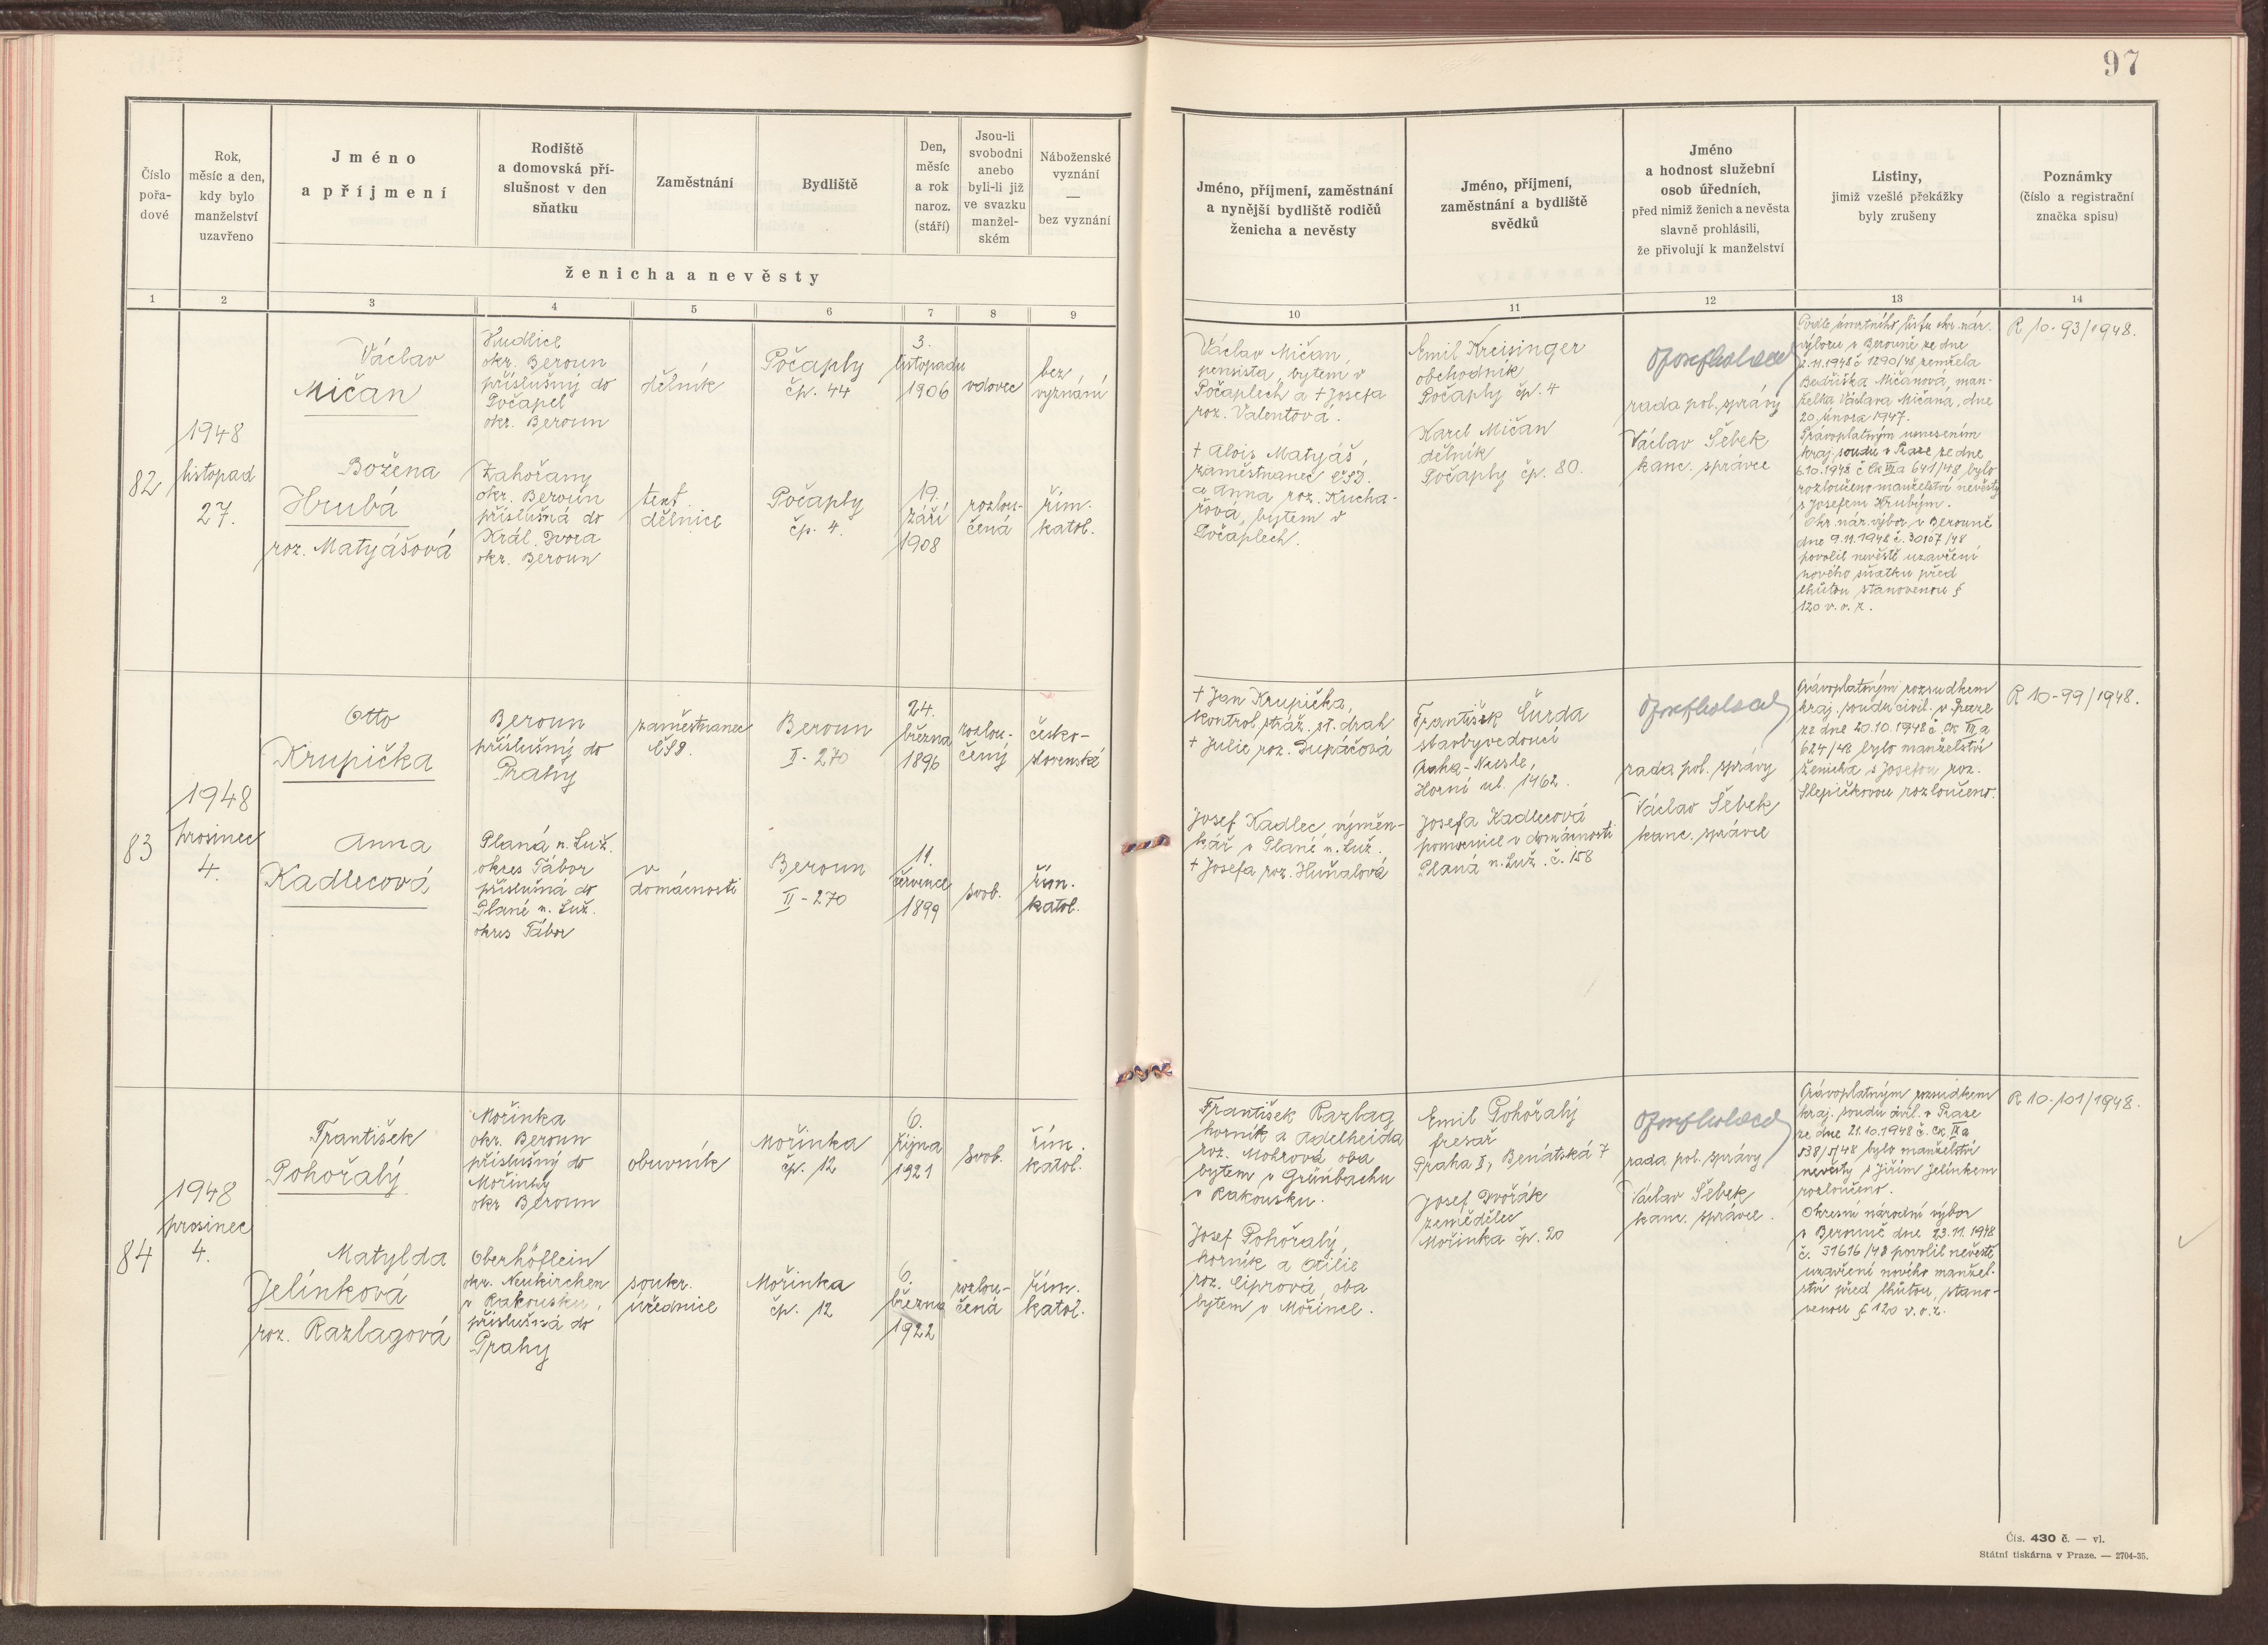 97
Číslo
pořa-
dové
Rok,
měsíc a den,
kdy bylo
manželství
uzavřeno
Jméno
a příjmení
Rodiště
a domovská pří-
slušnost v den
sňatku
Zaměstnání
Bydliště
Den,
měsíc
a rok
naroz.
(stáří)
Jsou-li
svobodni
anebo
byli-li již
ve svazku
manžel-
ském
Náboženské
vyznání
—
bez vyznání
ženicha a nevěsty
Jméno, příjmení, zaměstnání
a nynější bydliště rodičů
ženicha a nevěsty
Jméno, příjmení,
zaměstnání a bydliště
svědků
Jméno
a hodnost služební
osob úředních,
před nimiž ženich a nevěsta
slavně prohlásili,
že přivolují k manželství
Listiny,
jimiž vzešlé překážky
byly zrušeny
Poznámky
(číslo a registrační
značka spisu)
1 2 3 4 5 6 7 8 9 10 11 12 13 14
82
1948
listopad
27.
Václav
Mičan
Hudlice
okr. Beroun
příslušný do
Počapel
okr. Beroun
dělník
Počaply
čp. 44
3.
listopadu
1906
vdovec
bez
vyznání
Božena
Hrubá
roz. Matyášová
Zahořany
okr. Beroun
příslušná do
Král. Dvora
okr. Beroun
text.
dělnice
Počaply
čp. 4.
19.
září
1908
rozlou-
čená
řím.
katol.
Václav Mičan,
pensista, bytem v
Počaplech a † Josefa
roz. Valentová.
† Alois Matyáš,
zaměstnanec ČSD.
a Anna roz. Kucha-
řová, bytem v
Počaplech.
Emil Kreisinger
obchodník
Počaply čp. 4
Karel Mičan
dělník
Počaply čp. 80.
rada pol. správy
Václav Šebek
kanc. správce
Podle úmrtního listu okr. nár.
výboru v Berouně ze dne
2.11.1948 č 1290/48 zemřela
Bedřiška Mičanová, man-
želka Václava Mičana, dne
20. února 1947.
Právoplatným usnesením
kraj. soudu v Praze ze dne
6.10.1948 č Ck a 641/48 bylo
rozloučeno manželství nevěsty
s Josefem Hrubým.
Okr. nár. výbor v Berouně
dne 9.11.1948 č. 30107/48
povolil nevěstě uzavření
nového sňatku před
lhůtou stanovenou §
120 v. o. z.
R 10-93/1948.
83
1948
prosinec
4.
Otto
Krupička
Beroun
příslušný do
Prahy
zaměstnanec
ČSD.
Beroun
II - 270
24.
března
1896
rozlou-
čený
česko-
slovenské
Anna
Kadlecová
Planá n. Luž.
okres Tábor
příslušná do
Plané n. Luž.
okres Tábor
v
domácnosti
Beroun
II - 270
11.
července
1899
svob.
řím.
katol.
† Jan Krupička,
kontrol. stráž. st. drah
† Julie roz. Dupáčová
Josef Kadlec, výměn-
kář v Plané n. Luž.
† Josefa roz. Huňalová
František Čurda
stavbyvedoucí
Praha-Nusle,
Horní ul. 1462.
Josefa Kadlecová
pomocnice v domácnosti
Planá n. Luž. č. 158
rada pol. správy
Václav Šebek
kanc. správce
Právoplatným rozsudkem
kraj. soudu civil. v Praze
ze dne 20.10.1948 č. Ck a
624/48 bylo manželství
ženicha s Josefou roz.
Slepičkovou rozloučeno.
R 10-99/1948.
84
1948
prosinec
4.
František
Pohořalý
Mořinka
okr. Beroun
příslušný do
Mořinky
okr Beroun
obuvník
Mořinka
čp. 12
6.
října
1921
svob.
řím.
katol.
Matylda
Jelínková
roz. Razlagová
Oberhöflein
okr. Neukirchen
v Rakousku,
příslušná do
Prahy
soukr.
úřednice
Mořinka
čp. 12
6.
března
1922
rozlou-
čená
řím.
katol.
František Razlag
horník a Adelheida
roz. Moserová oba
bytem v Grünbachu
v Rakousku.
Josef Pohořalý,
horník a Otilie
roz. Ciprová, oba
bytem v Mořince.
Emil Pohořalý
fresař
Praha II, Benátská 7
Josef Dvořák
zemědělec
Mořinka čp. 20
rada pol. správy
Václav Šebek
kanc. správce.
Právoplatným rozsudkem
kraj. soudu civil. v Praze
ze dne 21.10.1948 č. Ck a
538/5/48 bylo manželství
nevěsty s Jiřím Jelínkem
rozloučeno.
Okresní národní výbor
v Berouně dne 23.11.1948
č. 31616/48 povolil nevěstě
uzavření nového manžel-
ství před lhůtou, stano-
venou § 120 v. o. z.
R 10-101/1948.
Čís. 430 č. — vl.
Státní tiskárna v Praze. — 2704-35.